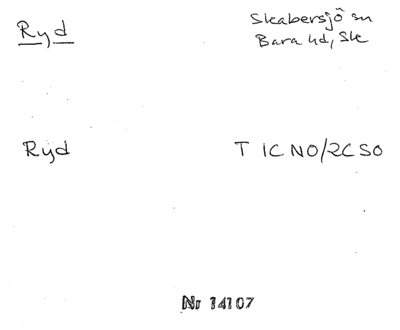 Ryd
Skabersjö sn
Bara hd, Ske
Ryd
T 1C NO/2C SO
Nr 14107